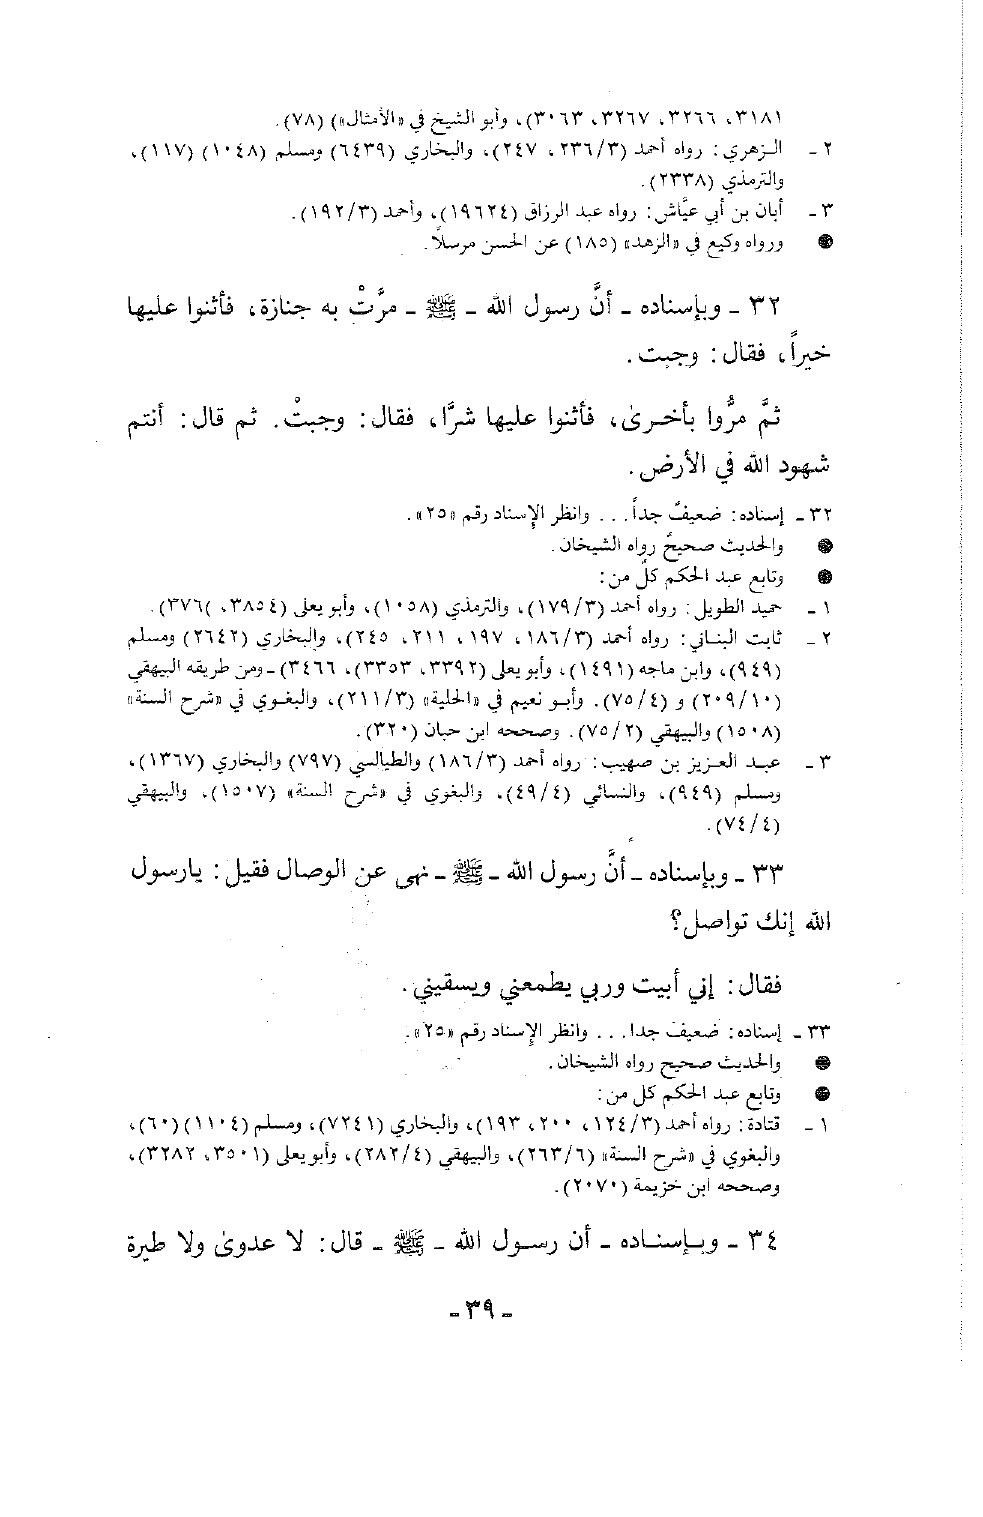 ٣١٨١، ٣٢٦٦، ٣٢٦٧، ٣٠٦٣)، وأبو الشيخ في «الأمثال») (٧٨).
٢ - الـزهري: رواه أحمد (٢٣٦/٣، ٢٤٧)، والبخاري (٦٤٣٩) ومسلم (١٠٤٨) (١١٧)،
والترمذي (٢٣٣٨).
٣ - أبان بن أبي عيَّاش: رواه عبد الرزاق (١٩٦٢٤)، وأحمد (١٩٢/٣).
● ورواه وكيع في «الزهد» (١٨٥) عن الحسن مرسلاً.
٣٢ - وبإسناده - أنَّ رسول الله - ﷺ - مرَّتْ به جنازة، فأثنوا عليها
خيراً، فقال: وجبت.
ثمَّ مرُّوا بأخـرىٰ، فأثنوا عليها شرًّا، فقال: وجبتْ. ثم قال: أنتم
شهود الله في الأرض.
٣٢ - إسناده: ضعيفٌ جداً... وانظر الإسناد رقم «٢٥».
● والحديث صحيحٌ رواه الشيخان.
● وتابع عبد الحكم كلٌ من:
١ - حميد الطويل: رواه أحمد (١٧٩/٣)، والترمذي (١٠٥٨)، وأبو يعلى (٣٨٥٤، )٣٧٦).
٢ - ثابت البنـاني: رواه أحمد (١٨٦/٣، ١٩٧، ٢١١، ٢٤٥)، والبخاري (٢٦٤٢) ومسلم
(٩٤٩)، وابن ماجه (١٤٩١)، وأبو يعلى (٣٣٩٢، ٣٣٥٣، ٣٤٦٦) - ومن طريقه البيهقي
(٢٠٩/١٠) و (٧٥/٤). وأبـو نعيم في «الحلية» (٢١١/٣)، والبغـوي في «شرح السنة»
(١٥٠٨) والبيهقي (٧٥/٢). وصححه ابن حبان (٣٢٠).
٣ - عبـد العـزيز بن صهيب: رواه أحمد (١٨٦/٣) والطيالسي (٧٩٧) والبخاري (١٣٦٧)،
ومسلم (٩٤٩)، والنسائي (٤٩/٤)، والبغوي في «شرح السنة» (١٥٠٧)، والبيهقي
(٧٤/٤).
٣٣ - وبإسناده - أنَّ رسول الله - ﷺ - نهى عن الوصال فقيل: يارسول
الله إنك تواصل؟
فقال: إني أبيت وربي يطمعني ويسقيني.
٣٣ - إسناده: ضعيف جدا... وانظر الإسناد رقم «٢٥».
● والحديث صحيح رواه الشيخان.
● وتابع عبد الحكم كل من:
١ - قتادة: رواه أحمد (١٢٤/٣، ٢٠٠، ١٩٣)، والبخاري (٧٢٤١)، ومسلم (١١٠٤) (٦٠)،
والبغوي في «شرح السنة» (٢٦٣/٦)، والبيهقي (٢٨٢/٤)، وأبو يعلى (٣٥٠١، ٣٢٨٢،
وصححه ابن خزيمة (٢٠٧٠).
٣٤ - وبـإسنـاده - أن رسـول الله - ﷺ - قال: لا عدوىٰ ولا طيرة
- ٣٩ -